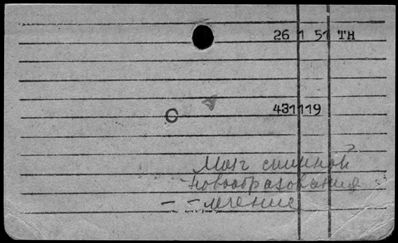 26 1 51 TH
431119
Мозг спинной
-новообразования
- - лечение